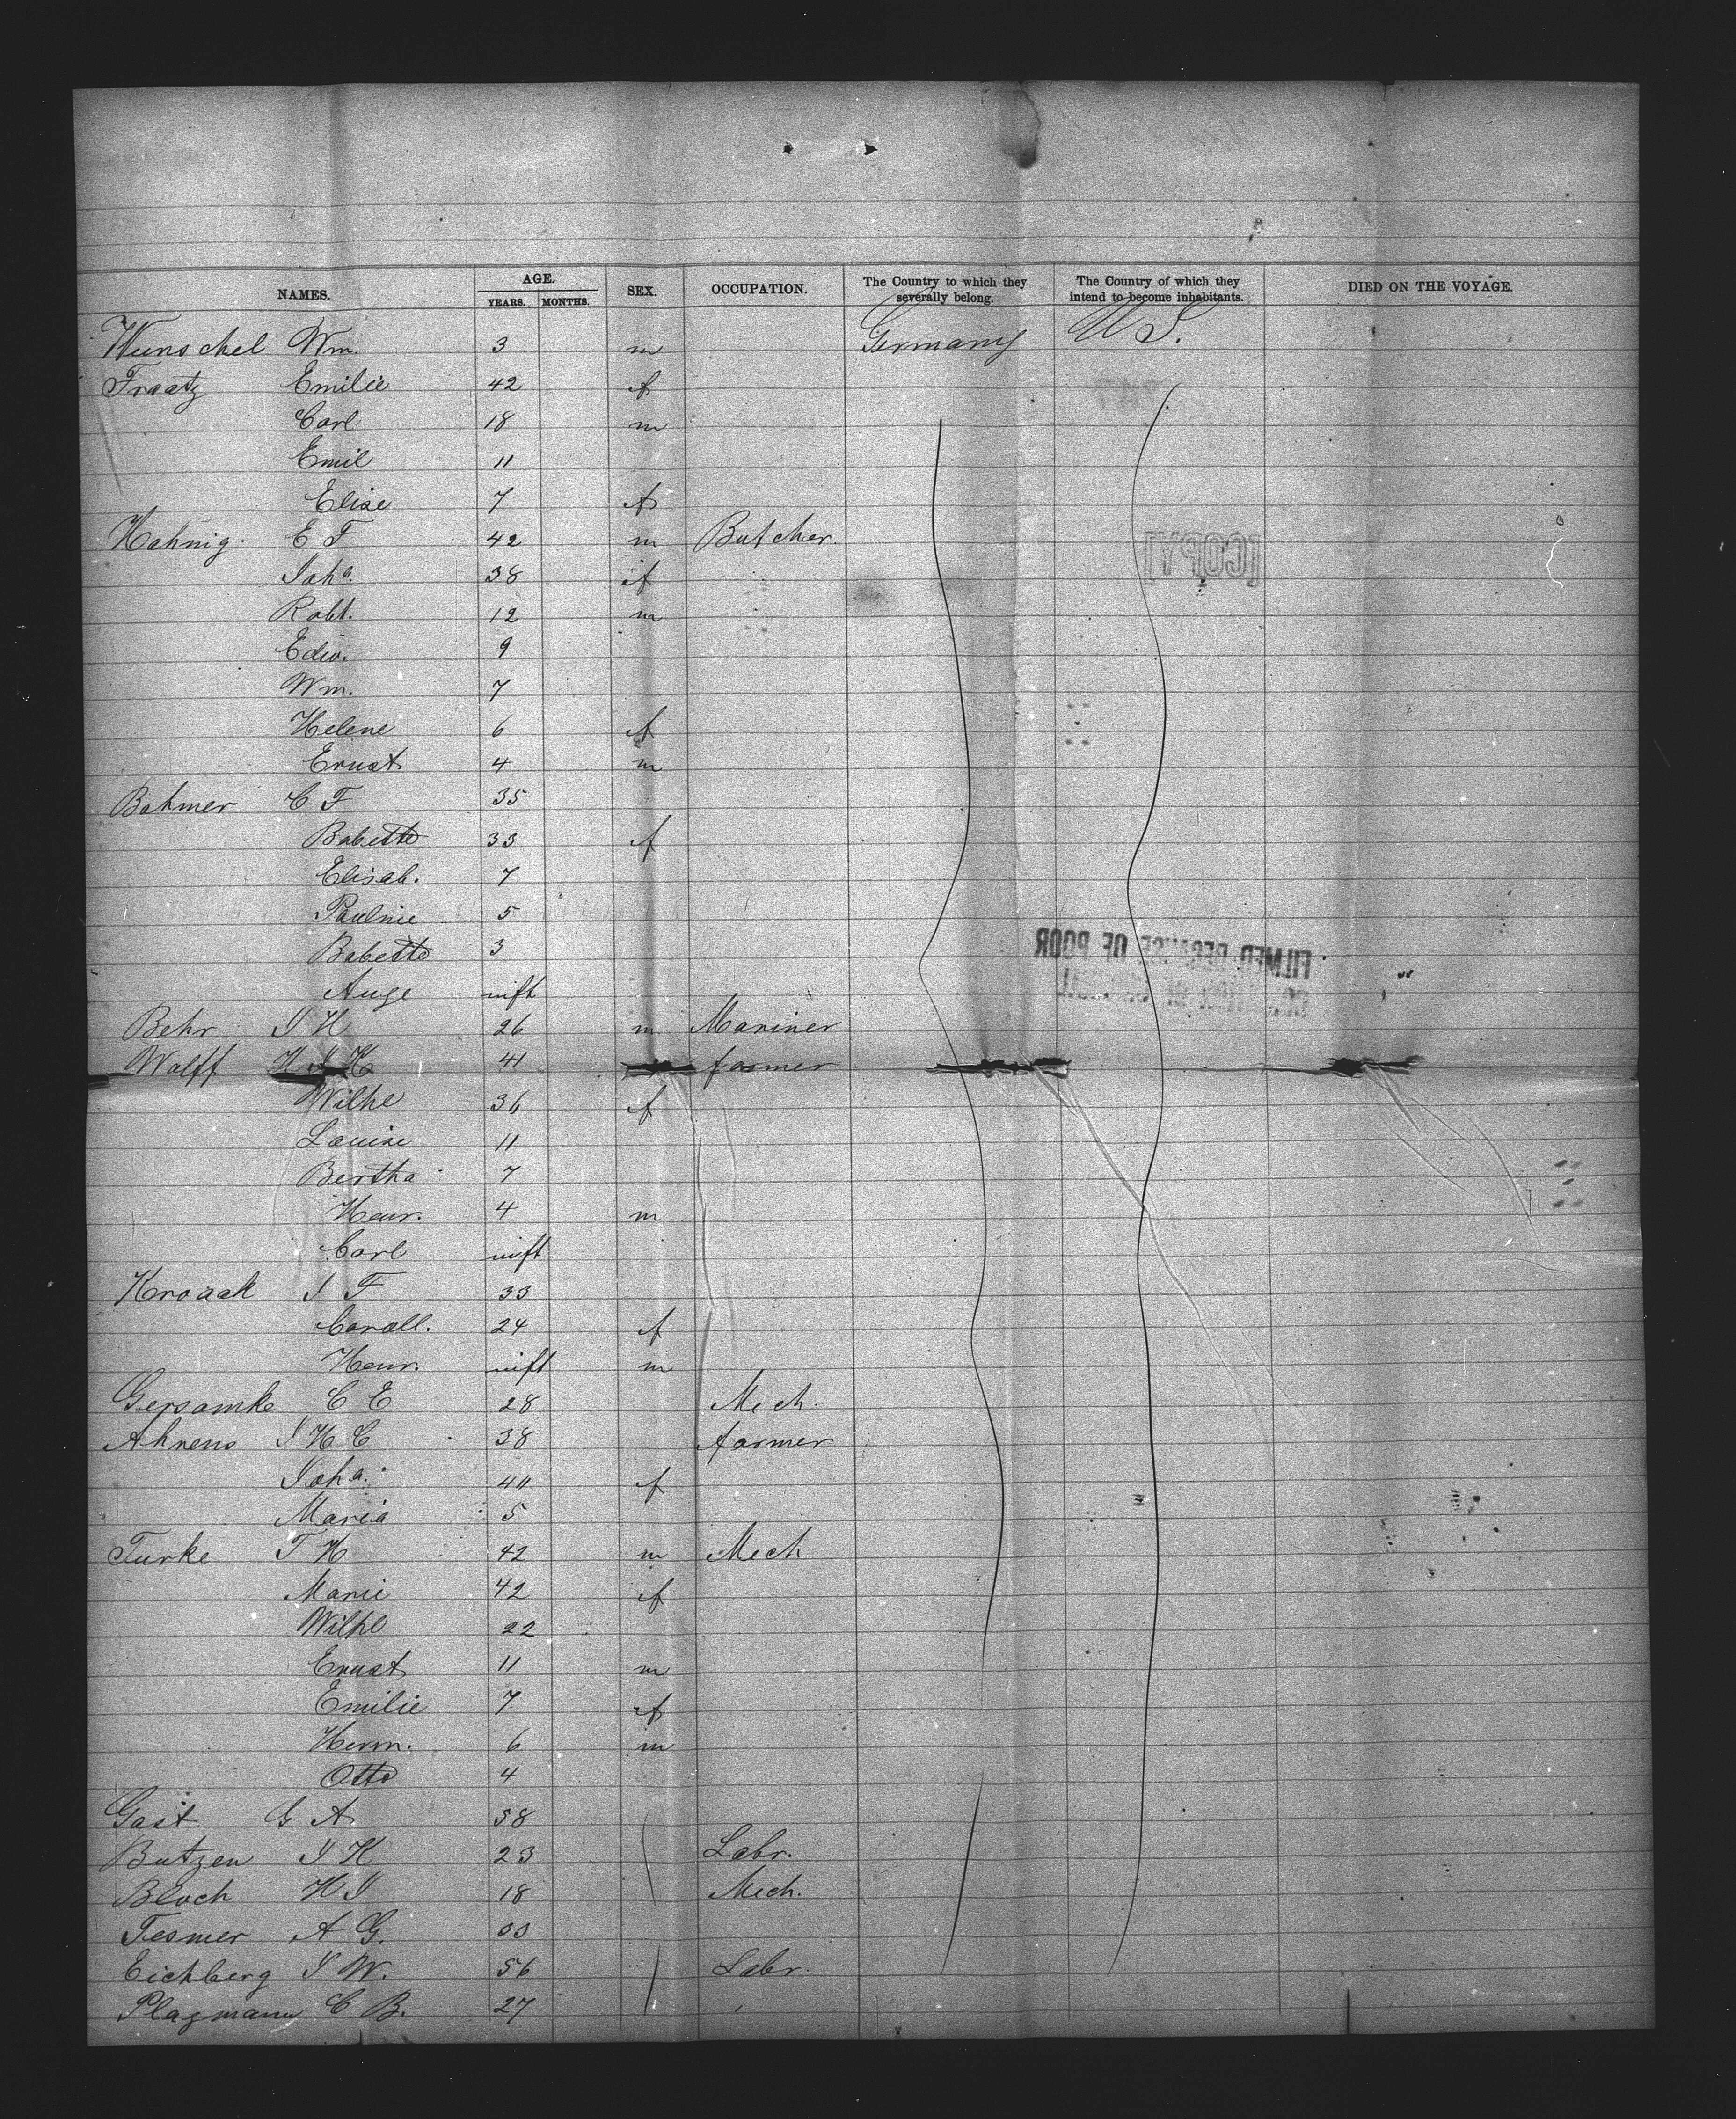 NAMES. AGE. YEARS. MONTHS. SEX. OCCUPATION. The Country to which they severally belong. The Country of which they intend to become inhabitants. DIED ON THE VOYAGE.
Wunschel Wm. 3 m Germany U S.
Fraatz Emilie 42 f
Carl 18 m
Emil 11
Elise 7 f
Hahnig. E F 42 m Butcher.
Joha. 38 f
Robt. 12 m
Edw. 9
Wm. 7
Helene 6 f
Ernst 4 m
Bohmer C F 35
Babette 33 f
Elisab. 7
Pauline 5
Babette 3
Auge inft
Behr J H 26 m Mariner
Wolff H J H 41 farmer
Wilhe 36 f
Louise 11
Bertha 7
Henr. 4 m
Carl inft
Kroaak J F 33
Caroll. 24 f
Henr. inft m
Gersamke C E 28 Mech.
Ahrens J H C 38 farmer
Joha. 40 f
Maria 5
Turke T H 42 m Mech
Marie 42 f
Wilhe 22
Ernst 11 m
Emilie 7 f
Herm. 6 m
Otto 4
Gast G A 58
Butzen J H 23 Labr.
Bloch H J 18 Mech.
Tesmer A G.
Eichberg J W. 56 Labr.
Plagmann C B. 27
[COPY]
FILMED BECAUSE OF POOR